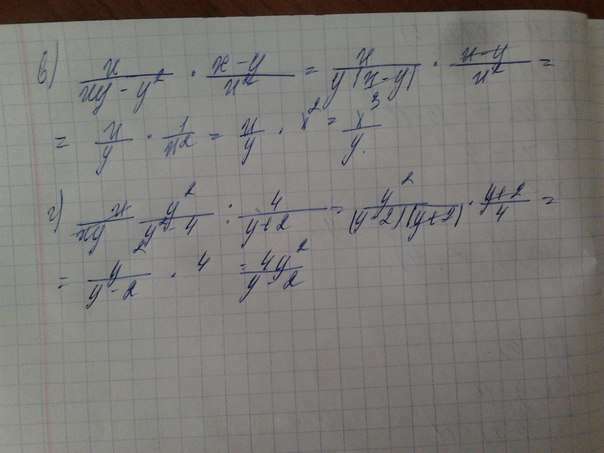 в) x/(xy - y²) · (x - y)/x² = x/(y(x - y)) · (x - y)/x² =
= x/y · 1/x² = x/y · x² = x³/y.
г) x/xy y²/(y² - 4) : 4/(y+2) = y²/((y-2)(y+2)) · (y+2)/4 =
= y/(y - 2) · 4 = 4y²/(y - 2)